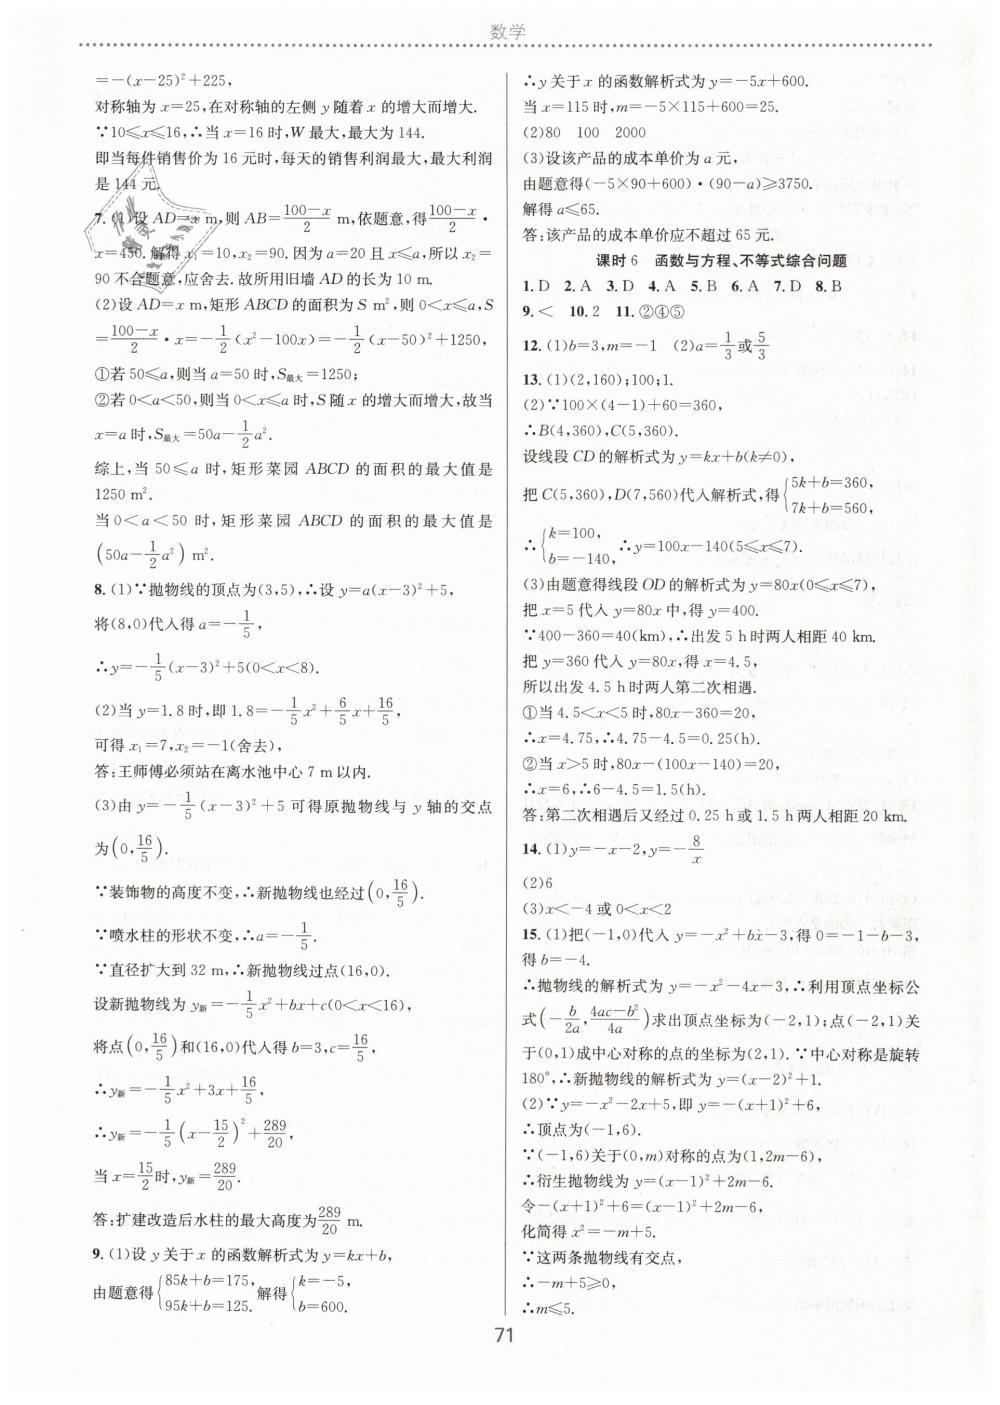 数学
=-(x-25)²+225,
对称轴为 x=25,在对称轴的左侧 y 随着 x 的增大而增大.
∵10≤x≤16,∴当 x=16 时,W 最大,最大为 144.
即当每件销售价为 16 元时,每天的销售利润最大,最大利润
是 144 元.
7. (1)设 AD=x m,则 AB=\frac{100-x}{2} m,依题意,得\frac{100-x}{2}·
x=450. 解得 x₁=10,x₂=90. 因为 a=20 且 x≤a,所以 x₂=
90 不合题意,应舍去. 故所用旧墙 AD 的长为 10 m.
(2)设 AD=x m,矩形 ABCD 的面积为 S m²,则 0<x≤a,S
=\frac{100-x}{2}·x=-\frac{1}{2}(x²-100x)=-\frac{1}{2}(x-50)²+1250,
①若 50≤a,则当 a=50 时,S最大=1250;
②若 0<a<50,则当 0<x≤a 时,S 随 x 的增大而增大,故当
x=a 时,S最大=50a-\frac{1}{2}a².
综上,当 50≤a 时,矩形菜园 ABCD 的面积的最大值是
1250 m².
当 0<a<50 时,矩形菜园 ABCD 的面积的最大值是
(50a-\frac{1}{2}a²) m².
8. (1)∵抛物线的顶点为(3,5),∴设 y=a(x-3)²+5,
将(8,0)代入得 a=-\frac{1}{5},
∴y=-\frac{1}{5}(x-3)²+5(0<x<8).
(2)当 y=1.8 时,即 1.8=-\frac{1}{5}x²+\frac{6}{5}x+\frac{16}{5},
可得 x₁=7,x₂=-1(舍去),
答:王师傅必须站在离水池中心 7 m 以内.
(3)由 y=-\frac{1}{5}(x-3)²+5 可得原抛物线与 y 轴的交点
为(0,\frac{16}{5}).
∵装饰物的高度不变,∴新抛物线也经过(0,\frac{16}{5}).
∵喷水柱的形状不变,∴a=-\frac{1}{5}.
∵直径扩大到 32 m,∴新抛物线过点(16,0).
设新抛物线为 y新=-\frac{1}{5}x²+bx+c(0<x<16),
将点(0,\frac{16}{5})和(16,0)代入得 b=3,c=\frac{16}{5},
∴y新=-\frac{1}{5}x²+3x+\frac{16}{5},
∴y新=-\frac{1}{5}(x-\frac{15}{2})²+\frac{289}{20},
当 x=\frac{15}{2}时,y新=\frac{289}{20}.
答:扩建改造后水柱的最大高度为\frac{289}{20} m.
9. (1)设 y 关于 x 的函数解析式为 y=kx+b,
由题意得{85k+b=175, 95k+b=125. 解得{k=-5, b=600.
∴y 关于 x 的函数解析式为 y=-5x+600.
当 x=115 时,m=-5×115+600=25.
(2)80 100 2000
(3)设该产品的成本单价为 a 元,
由题意得(-5×90+600)·(90-a)≥3750.
解得 a≤65.
答:该产品的成本单价应不超过 65 元.
课时 6 函数与方程、不等式综合问题
1. D 2. A 3. D 4. A 5. B 6. A 7. D 8. B
9. < 10. 2 11. ②④⑤
12. (1)b=3,m=-1 (2)a=\frac{1}{3}或\frac{5}{3}
13. (1)(2,160);100;1.
(2)∵100×(4-1)+60=360,
∴B(4,360),C(5,360).
设线段 CD 的解析式为 y=kx+b(k≠0),
把 C(5,360),D(7,560)代入解析式,得{5k+b=360, 7k+b=560,
∴{k=100, b=-140, ∴y=100x-140(5≤x≤7).
(3)由题意得线段 OD 的解析式为 y=80x(0≤x≤7),
把 x=5 代入 y=80x 中,得 y=400.
∵400-360=40(km),∴出发 5 h 时两人相距 40 km.
把 y=360 代入 y=80x,得 x=4.5,
所以出发 4.5 h 时两人第二次相遇.
①当 4.5<x<5 时,80x-360=20,
∴x=4.75,∴4.75-4.5=0.25(h).
②当 x>5 时,80x-(100x-140)=20,
∴x=6,∴6-4.5=1.5(h).
答:第二次相遇后又经过 0.25 h 或 1.5 h 两人相距 20 km.
14. (1)y=-x-2,y=-\frac{8}{x}
(2)6
(3)x<-4 或 0<x<2
15. (1)把(-1,0)代入 y=-x²+bx-3,得 0=-1-b-3,
得 b=-4.
∴抛物线的解析式为 y=-x²-4x-3,∴利用顶点坐标公
式(-\frac{b}{2a},\frac{4ac-b²}{4a})求出顶点坐标为(-2,1);点(-2,1)关
于(0,1)成中心对称的点的坐标为(2,1). ∵中心对称是旋转
180°,∴新抛物线的解析式为 y=(x-2)²+1.
(2)∵y=-x²-2x+5,即 y=-(x+1)²+6,
∴顶点为(-1,6).
∵(-1,6)关于(0,m)对称的点为(1,2m-6),
∴衍生抛物线为 y=(x-1)²+2m-6.
令-(x+1)²+6=(x-1)²+2m-6,
化简得 x²=-m+5.
∵这两条抛物线有交点,
∴-m+5≥0,
∴m≤5.
71